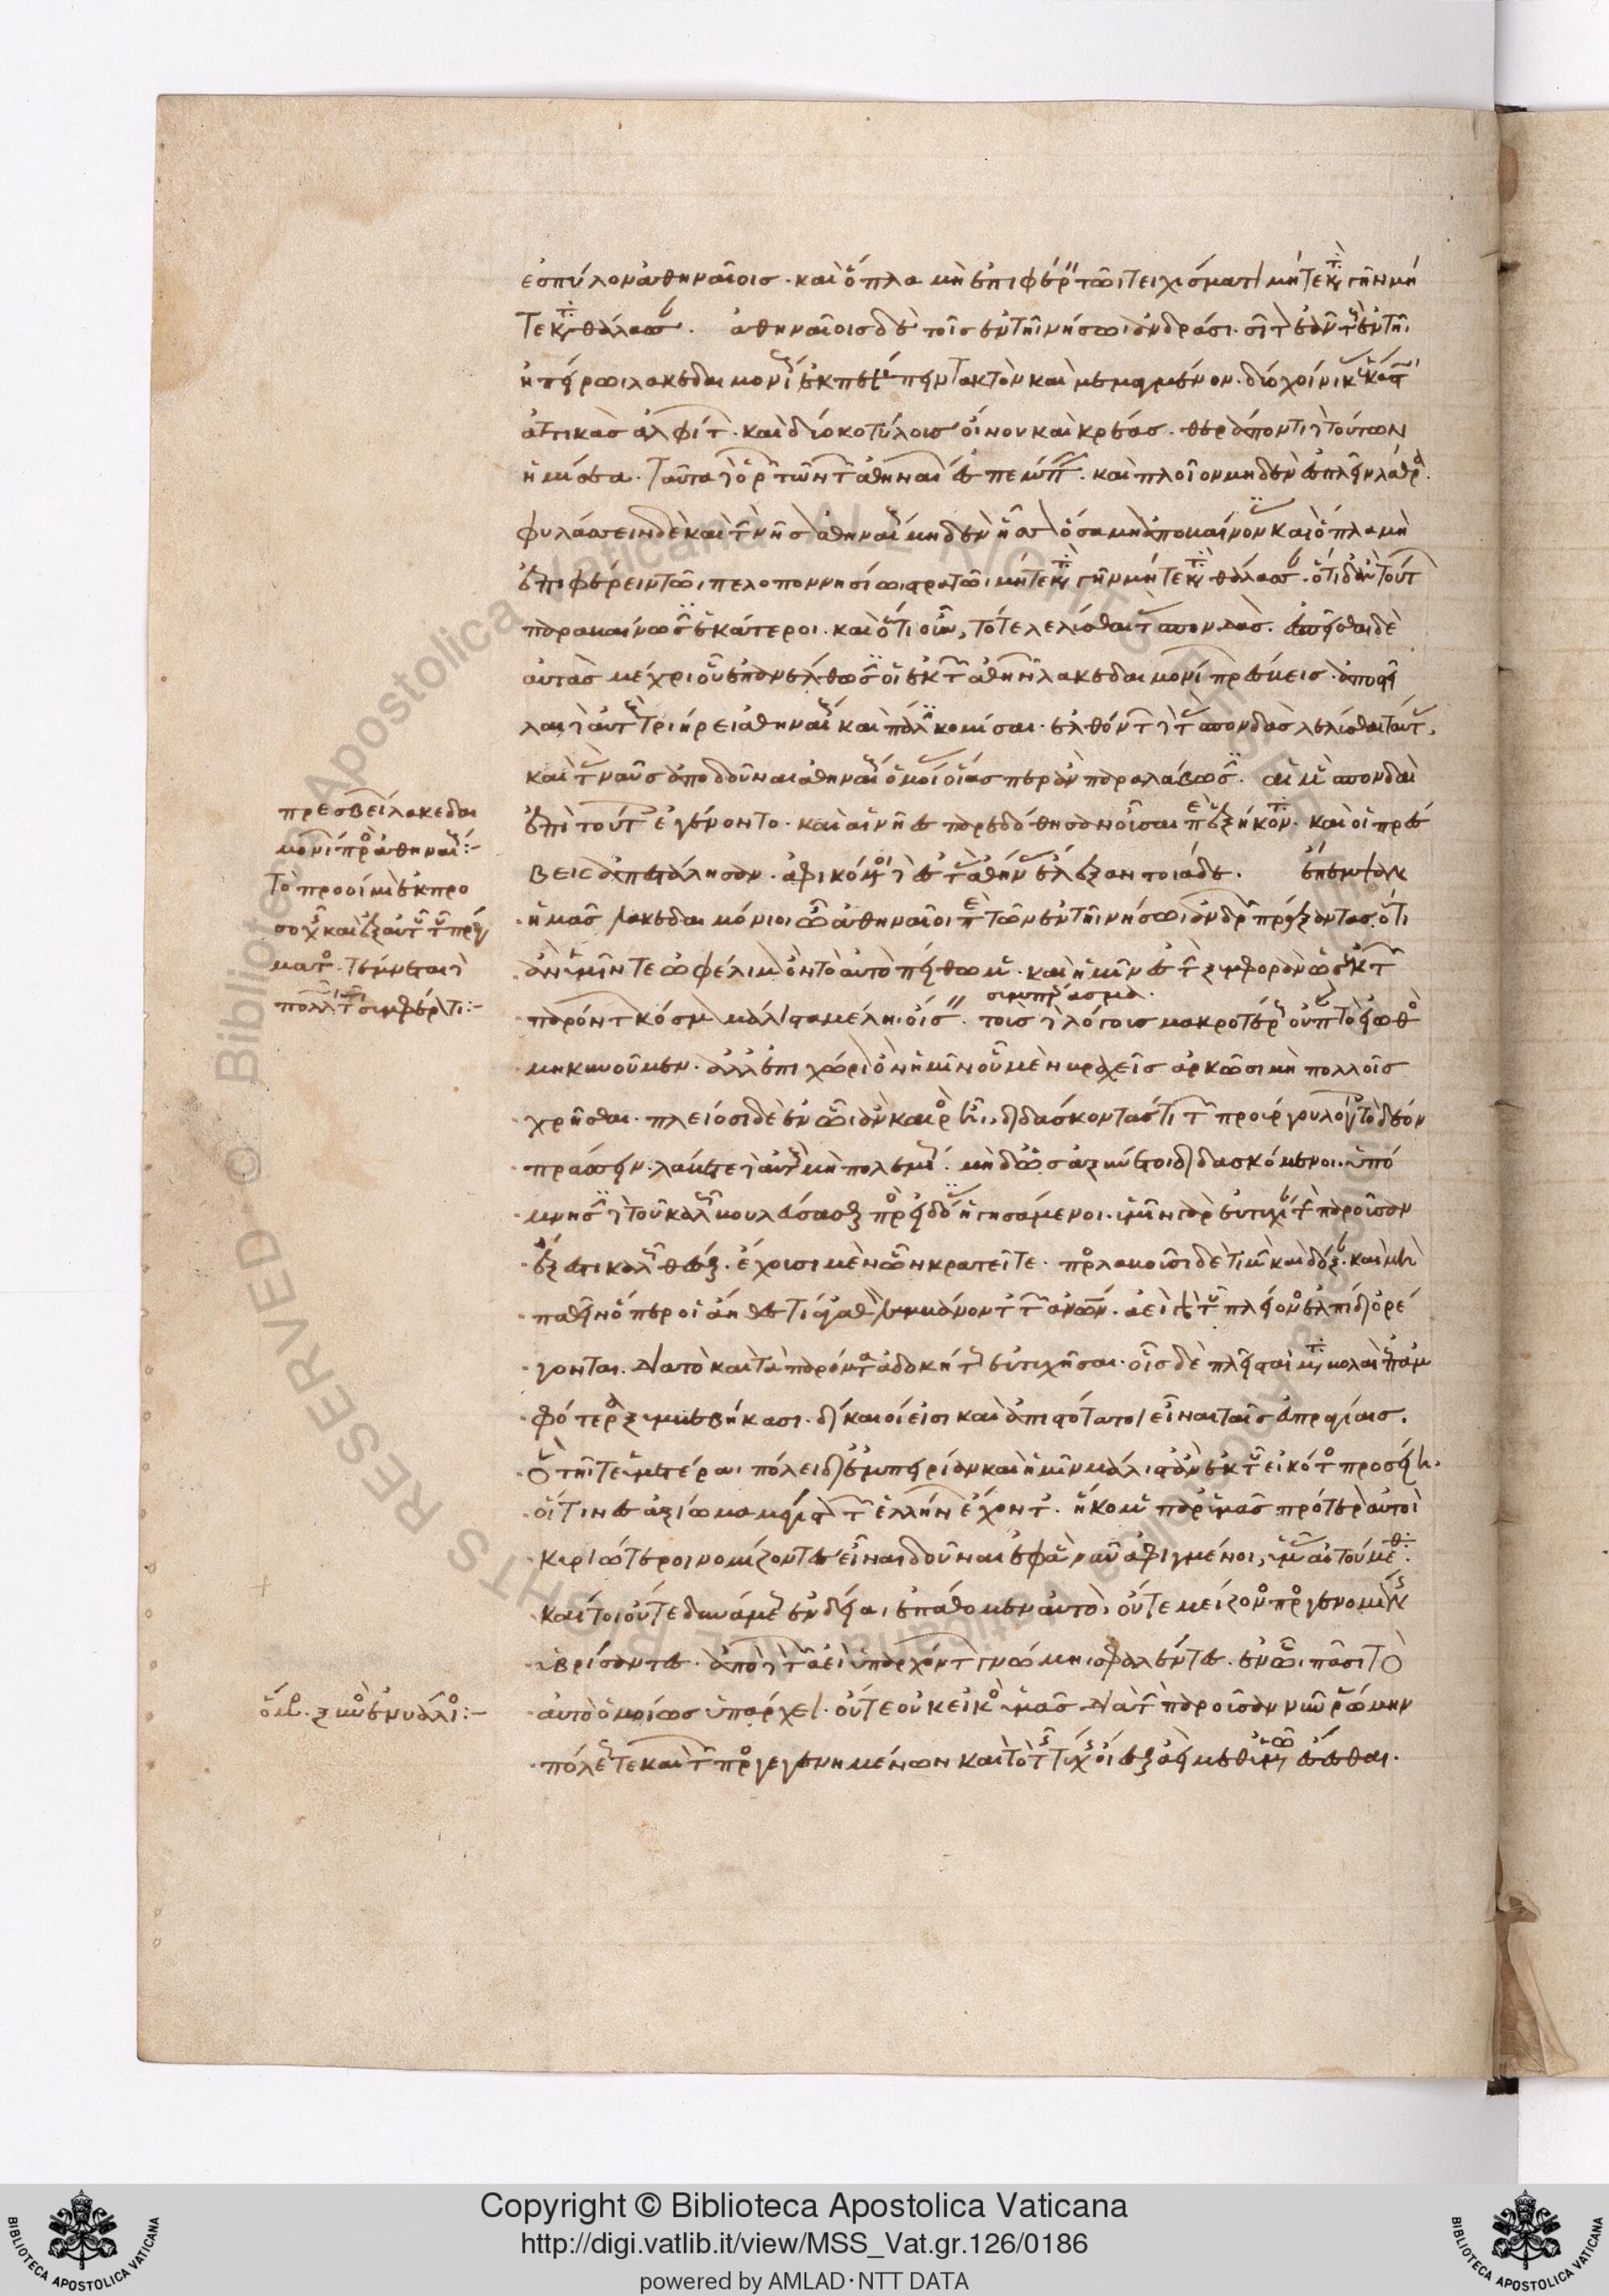 ἐς πύλον ἀθηναίοις· καὶ ὅπλα μὴ ἐπιφέρειν τῶι τειχίσματι μήτε κατὰ γῆν μή
τε κατὰ θάλασσαν. ἀθηναίοις δὲ τοῖς ἐν τῆι νήσωι ἀνδράσι σῖτον ἐᾶν τοὺς ἐν τῆι
ἠπείρωι λακεδαιμονίους ἐκπέμπειν τακτὸν καὶ μεμαγμένον· δύο χοίνικας ἑκάστωι
ἀττικὰς ἀλφίτων· καὶ δύο κοτύλας οἴνου καὶ κρέας· θεράποντι δὲ τούτων
ἡμίσεα· ταῦτα δὲ ὁρώντων τῶν ἀθηναίων ἐσπέμπειν· καὶ πλοῖον μηδὲν ἐσπλεῖν λάθρα.
φυλάσσειν δὲ καὶ τὴν νῆσον ἀθηναίους μηδὲν ἧσσον ὅσα μὴ ἀποβαίνοντας καὶ ὅπλα μὴ
ἐπιφέρειν τῶι πελοποννησίωι στρατῶι μήτε κατὰ γῆν μήτε κατὰ θάλασσαν· ὅτι δ' ἂν τούτων
παραβαίνωσιν ἑκάτεροι καὶ ὁτιοῦν, τότε λελύσθαι τὰς σπονδάς. ἐσπεῖσθαι δὲ
αὐτὰς μέχρι οὗ ἐπανέλθωσιν οἱ ἐκ τῶν ἀθηνῶν λακεδαιμονίων πρέσβεις· ἀποστεῖ
λαι δὲ αὐτοὺς τριήρει ἀθηναίους καὶ πάλιν κομίσαι· ἐλθόντων δὲ τὰς σπονδὰς λελύσθαι ταύτας,
καὶ τὰς ναῦς ἀποδοῦναι ἀθηναίους ὁμοίας οἵασπερ ἂν παραλάβωσιν. αἱ μὲν σπονδαὶ
ἐπὶ τούτοις ἐγένοντο· καὶ αἱ νῆες παρεδόθησαν οὖσαι περὶ ἑξήκοντα· καὶ οἱ πρέσ
βεις ἀπεστάλησαν· ἀφικόμενοι δὲ ἐς τὰς ἀθήνας ἔλεξαν τοιάδε. ἔπεμψαν
ἡμᾶς λακεδαιμόνιοι ὦ ἀθηναῖοι περὶ τῶν ἐν τῆι νήσωι ἀνδρῶν πράξοντας ὅτι
ἂν ὑμῖν τε ὠφέλιμον ὂν τὸ αὐτὸ πείθωμεν· καὶ ἡμῖν ἐς τὴν ξυμφορὰν ὡς ἐκ τῶν
παρόντων κόσμον μάλιστα μέλληι οἴσειν. τοὺς δὲ λόγους μακροτέρους οὐ παρὰ τὸ εἰωθὸς
μηκυνοῦμεν· ἀλλ' ἐπιχώριον ὂν ἡμῖν οὗ μὲν βραχεῖς ἀρκῶσι μὴ πολλοῖς
χρῆσθαι· πλείοσι δὲ ἐν ὧι ἂν καιρὸς ἦι, διδάσκοντάς τι τῶν προύργου λόγοις τὸ δέον
πράσσειν. λάβετε δὲ αὐτοὺς μὴ πολεμίως· μηδ' ὡς ἀξύνετοι διδασκόμενοι· ὑπό
μνησιν δὲ τοῦ καλῶς βουλεύσασθαι πρὸς εἰδότας ἡγησάμενοι. ὑμῖν γὰρ εὐτυχίαν τὴν παροῦσαν
ἔξεστι καλῶς θέσθαι· ἔχουσι μὲν ὧν κρατεῖτε· προσλαβοῦσι δὲ τιμὴν καὶ δόξαν· καὶ μὴ
παθεῖν ὅπερ οἱ ἀήθως τι ἀγαθὸν λαμβάνοντες τῶν ἀνθρώπων· ἀεὶ γὰρ τοῦ πλείονος ἐλπίδι ὀρέ
γονται. διὰ τὸ καὶ τὰ παρόντα ἀδοκήτως εὐτυχῆσαι. οἷς δὲ πλεῖσται μεταβολαὶ ἐπ' ἀμ
φότερα ξυμβεβήκασι· δίκαιοί εἰσι καὶ ἀπιστότατοι εἶναι ταῖς εὐπραγίαις.
ὃ τῆι τε ὑμετέραι πόλει δι' ἐμπειρίαν καὶ ἡμῖν μάλιστ' ἂν ἐκ τοῦ εἰκότος προσείη.
οἵτινες ἀξίωμα μέγιστον τῶν ἑλλήνων ἔχοντες· ἥκομεν παρ' ὑμᾶς πρότερον αὐτοὶ
κυριώτεροι νομίζοντες εἶναι δοῦναι ἐφ' ἃ νῦν ἀφιγμένοι, ὑμᾶς αἰτούμεθα.
καίτοι οὔτε δυνάμεως ἐνδείαι ἐπάθομεν αὐτό, οὔτε μείζονος προσγενομένης
ὑβρίσαντες. ἀπὸ δὲ τῶν ἀεὶ ὑπαρχόντων γνώμηι σφαλέντες. ἐν ὧι πᾶσι τὸ
αὐτὸ ὁμοίως ὑπάρχει. ὥστε οὐκ εἰκὸς ὑμᾶς διὰ τὴν παροῦσαν νῦν ῥώμην
πόλεώς τε καὶ τῶν προσγεγενημένων καὶ τὸ τῆς τύχης οἴεσθαι ἀεὶ μεθ' ὑμῶν ἔσεσθαι.
πρεσβεία λακεδαι
μονίων πρὸς ἀθηναίους:-
τὸ προοίμιον ἐκ προ
σοχῆς καὶ ἐξ αὐτοῦ τοῦ πράγ
ματος
Copyright © Biblioteca Apostolica Vaticana
http://digi.vatlib.it/view/MSS_Vat.gr.126/0186
powered by AMLAD·NTT DATA
BIBLIOTECA APOSTOLICA VATICANA
BIBLIOTECA APOSTOLICA VATICANA
Biblioteca Apostolica Vaticana ALL RIGHTS RESERVED ©